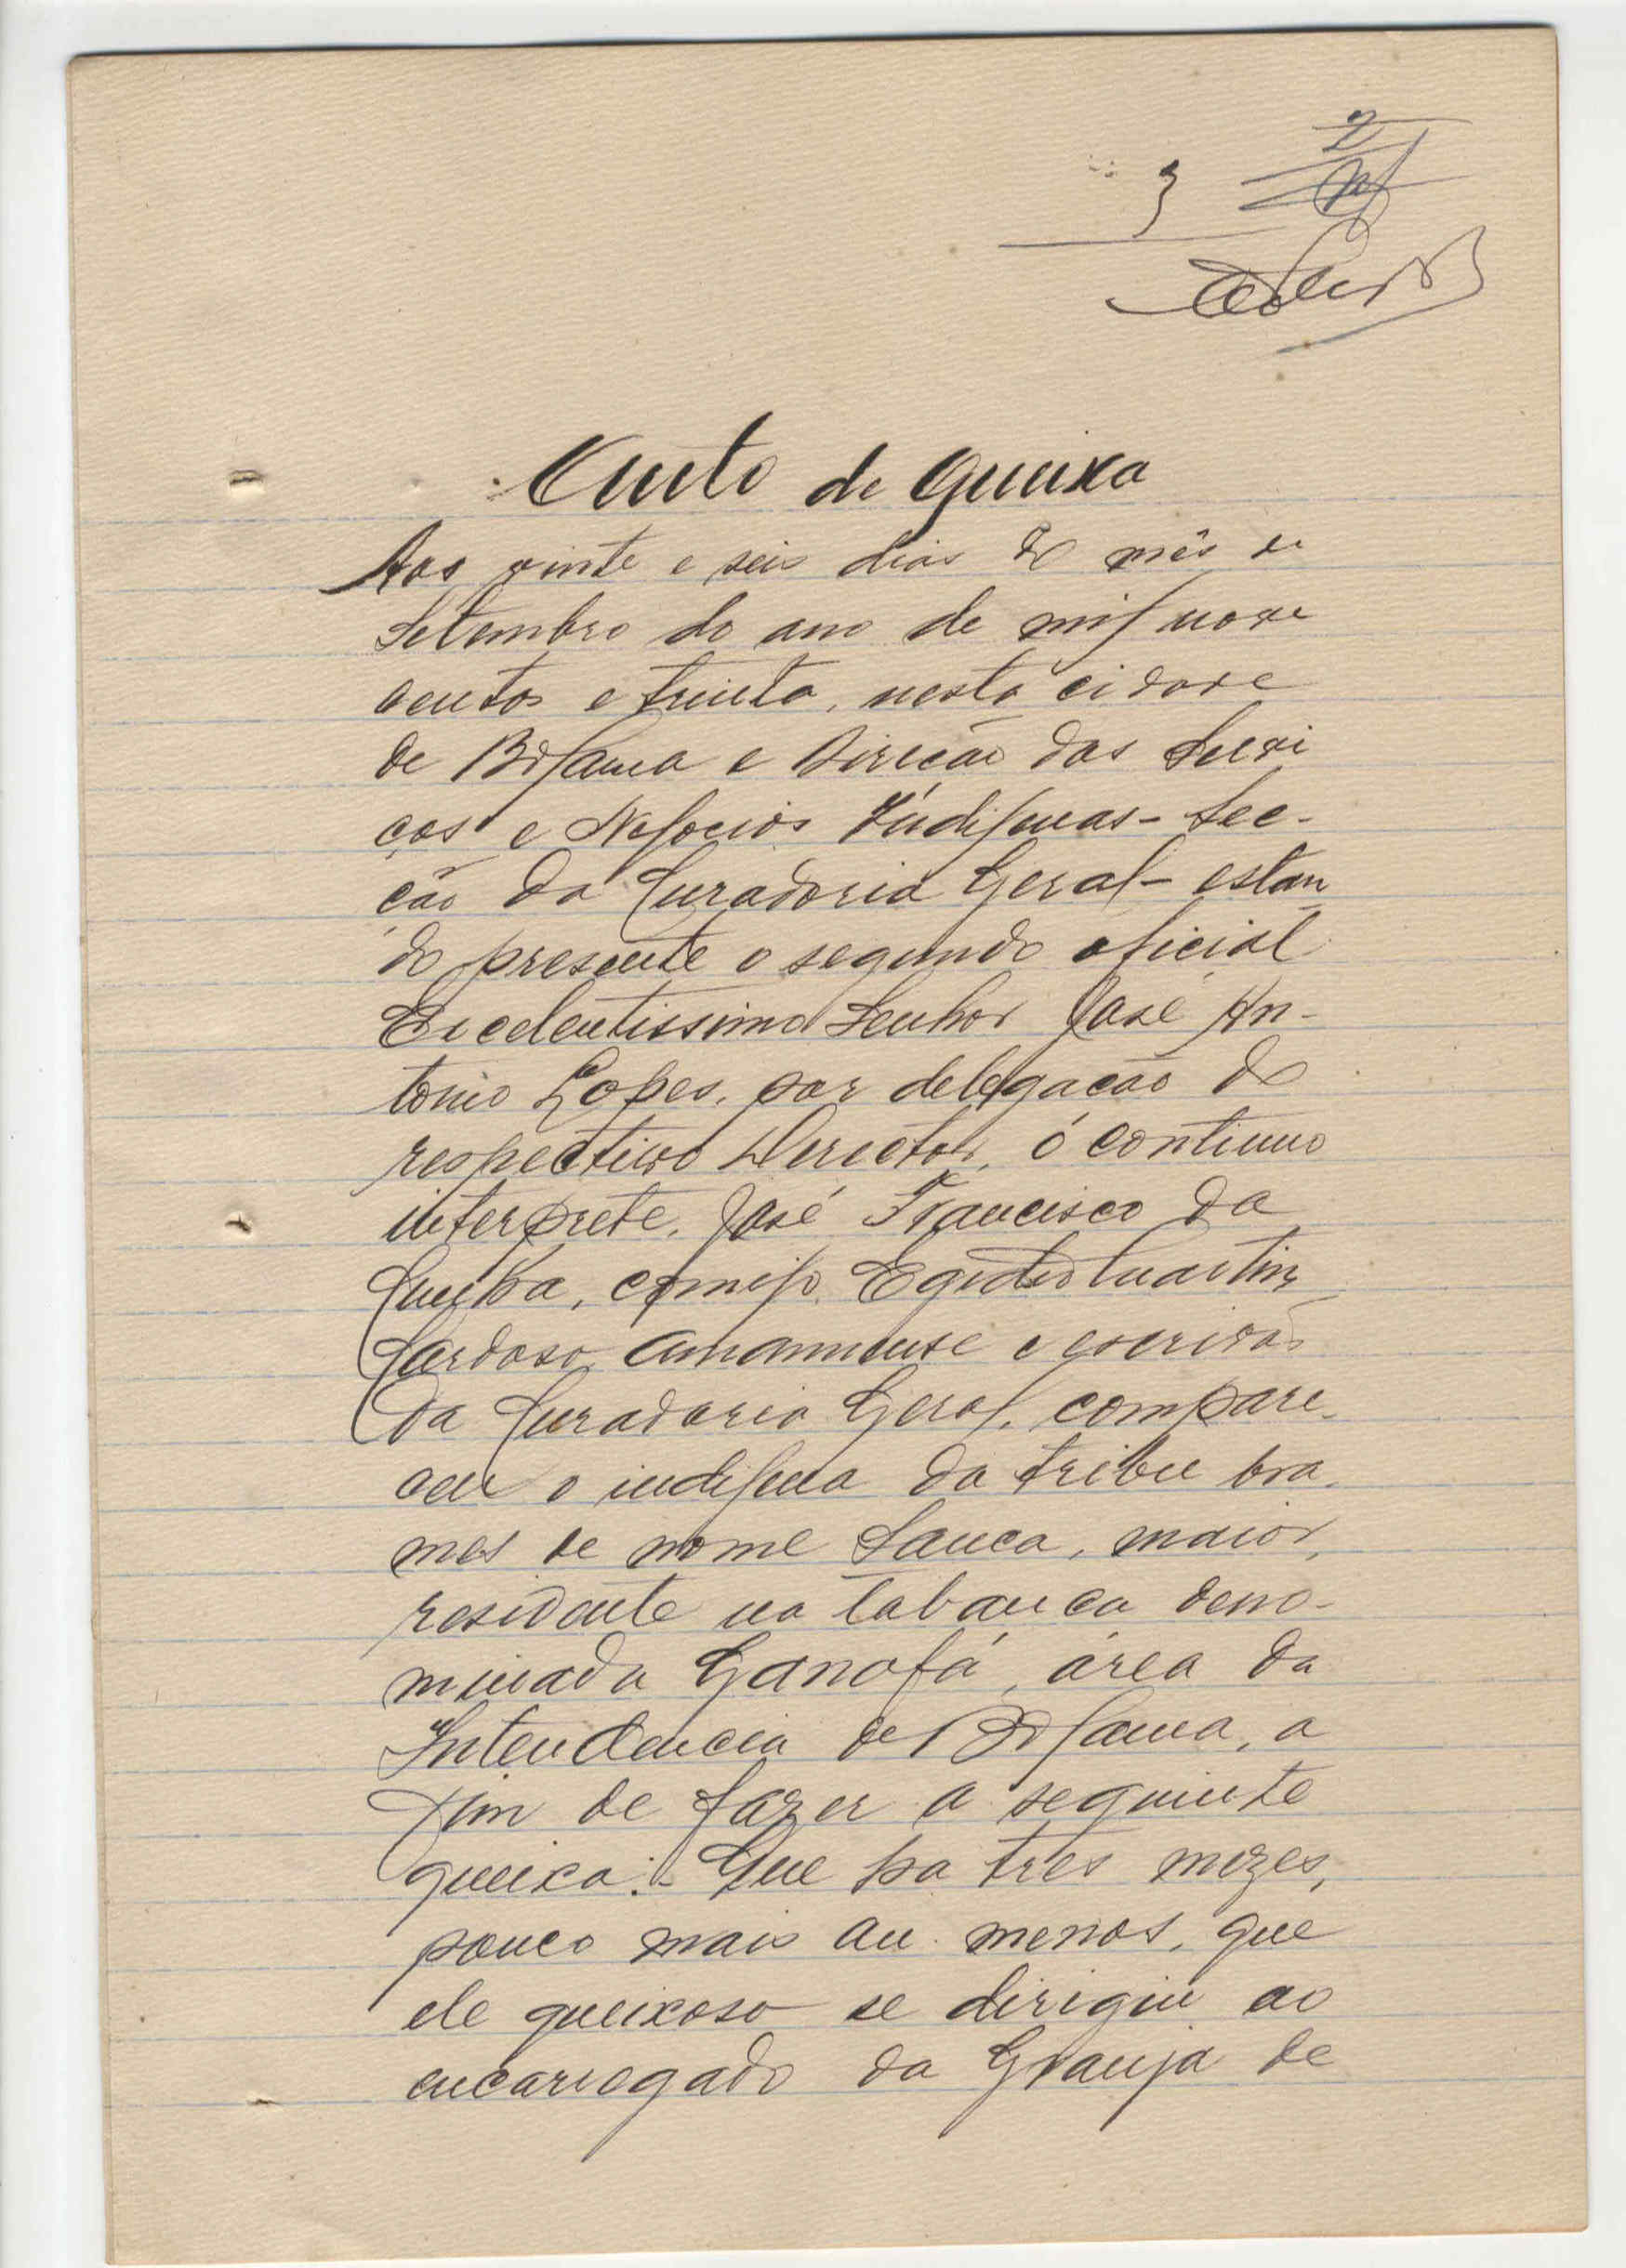 2
3
Auto de queixa
Aos vinte e seis dias do mês de
Setembro do ano de mil nove
centos e trinta, nesta cidade
de Bolama e Direcão dos Servi
ços e Negocios Indígenas - Sec-
ção da Curadoria Geral - estan
do presente o segundo oficial
Excelentissimo Senhor José An-
tonio Lopes, por delegação do
respectivo Director, o continuo
interprete, José Francisco da
Cunha, comigo Egidio Martins
Cardoso, amanuense e escrivão
da Curadoria Geral, compare-
ceu o indigena da tribu bra-
mes de nome Sanca, maior,
residente na tabanca deno-
minada Ganofá, área da
Intendencia de Bolama, a
fim de fazer a seguinte
queixa:- Que ha tres mezes,
pouco mais ou menos, que
ele queixoso se dirigiu ao
encarregado da Granja de